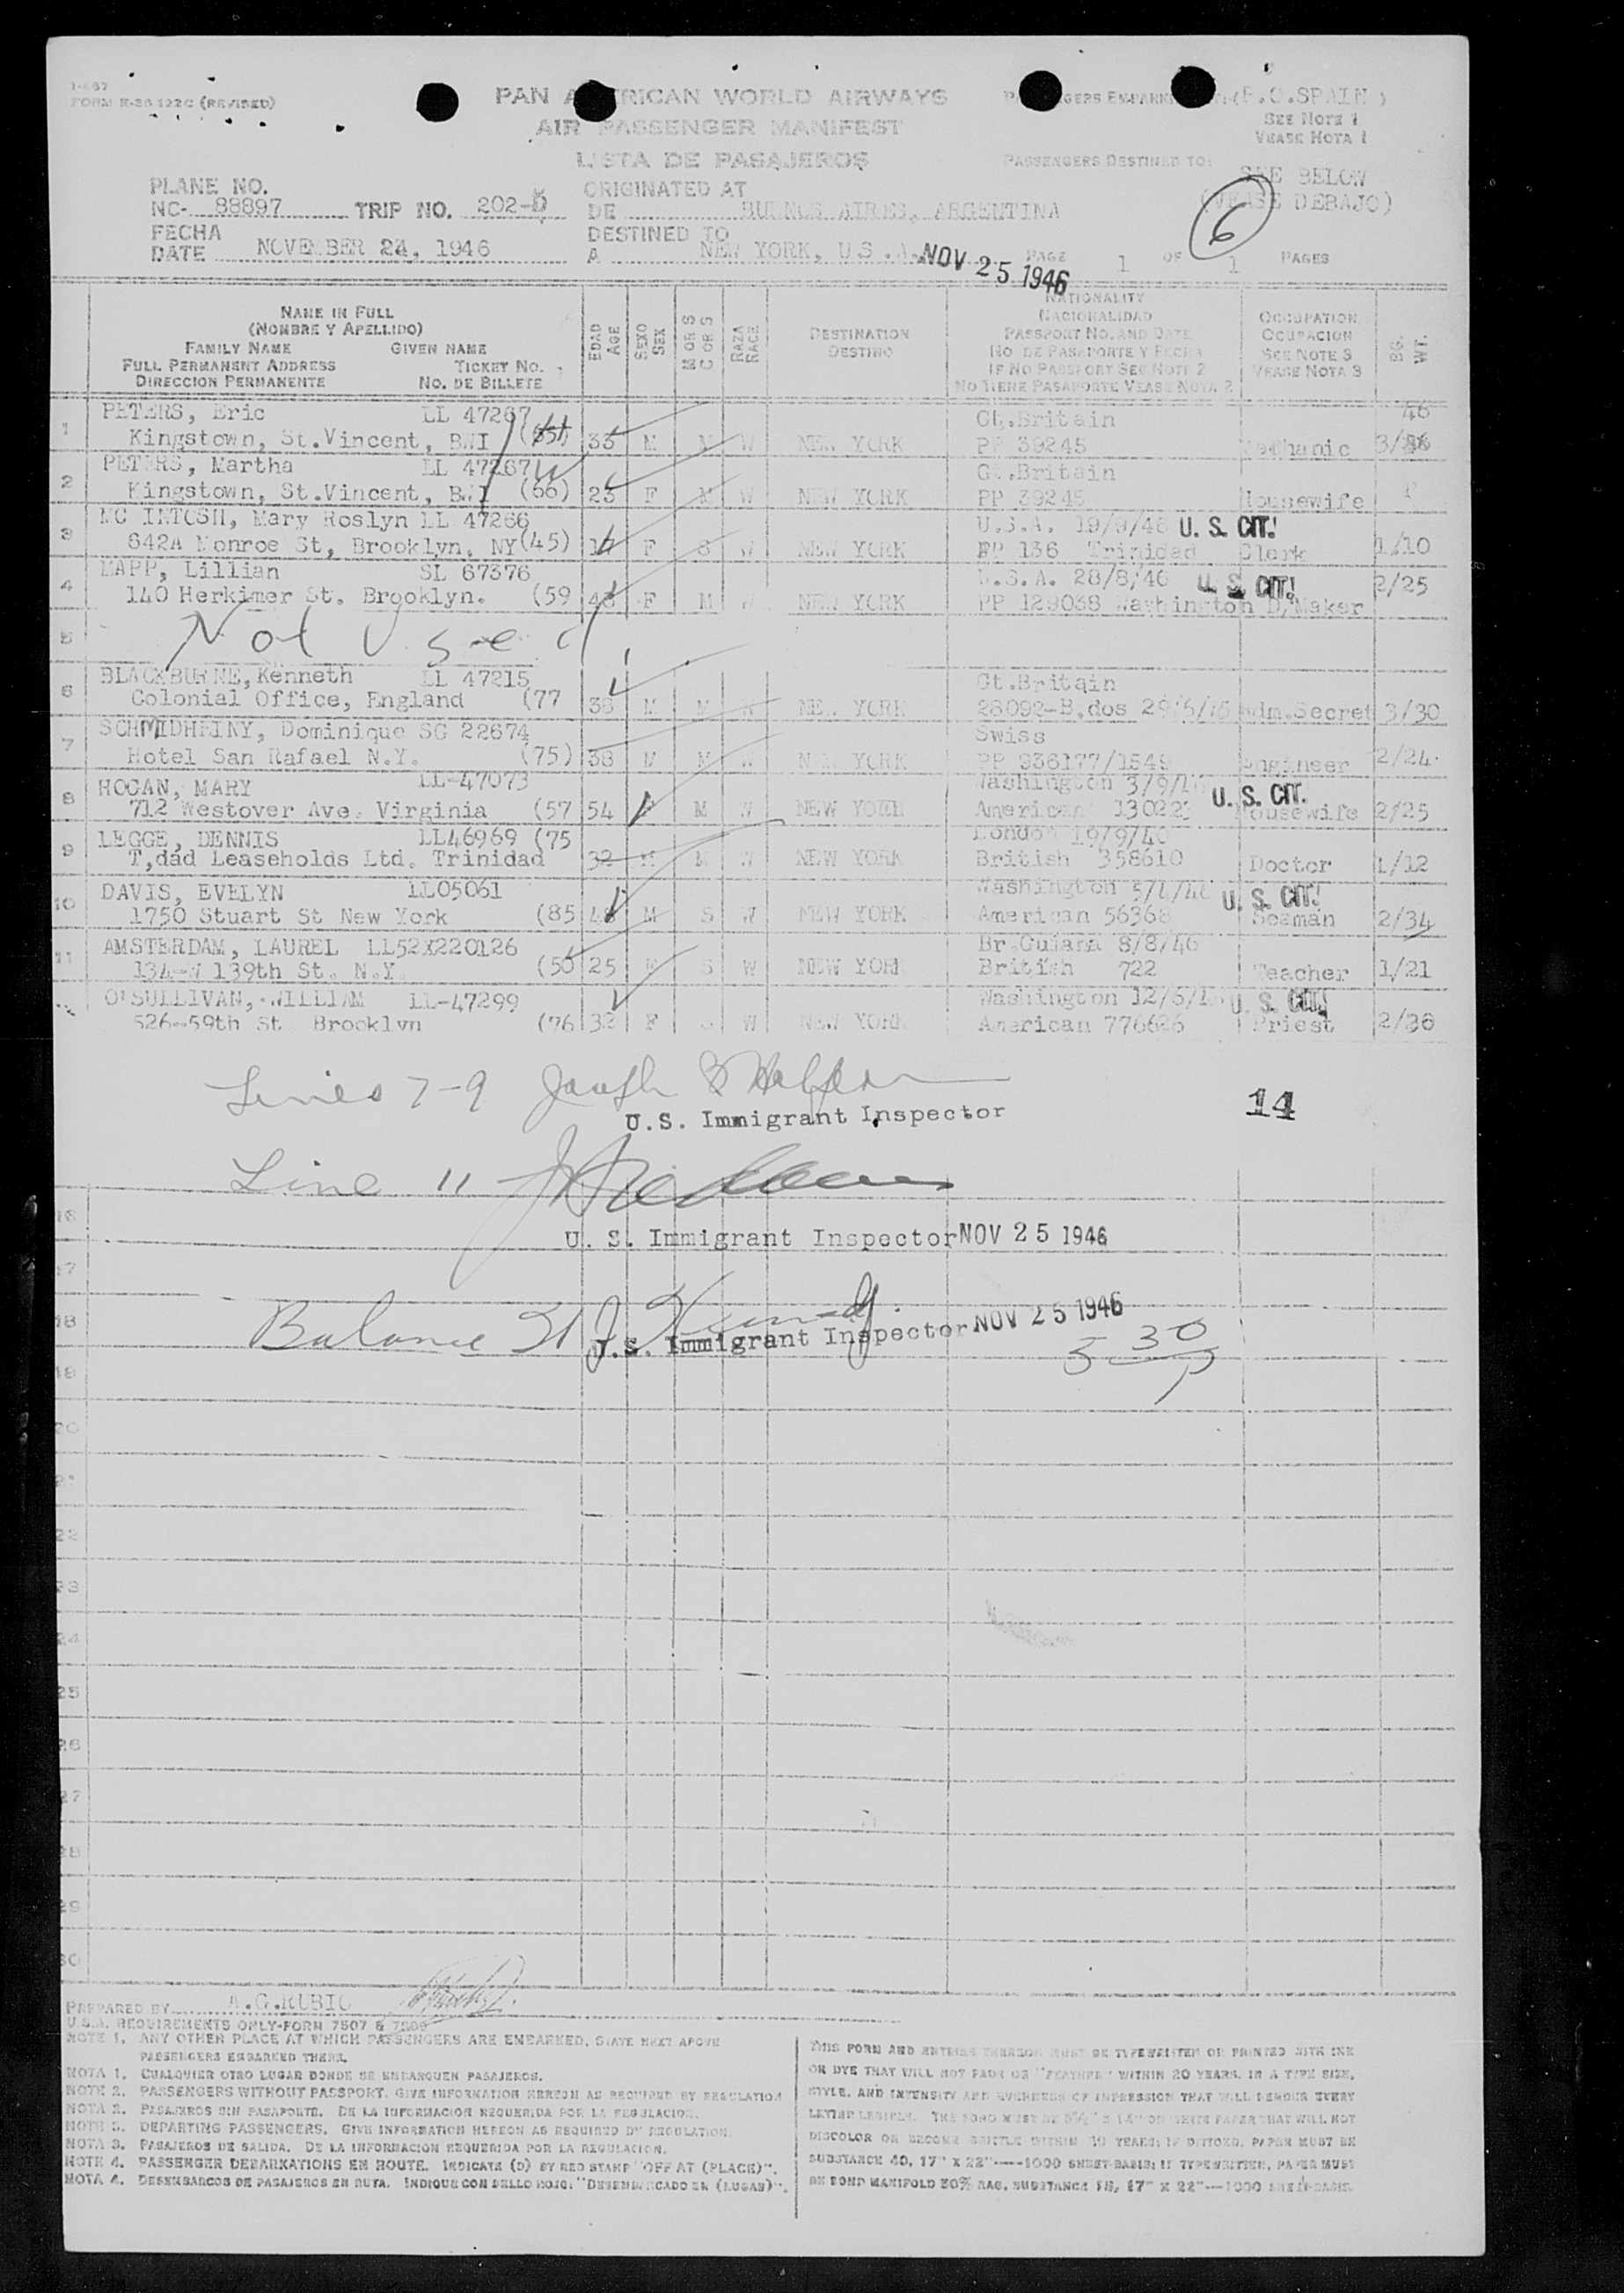 I-467
FORM R-26 122C (REVISED)
PAN AMERICAN WORLD AIRWAYS
AIR PASSENGER MANIFEST
LISTA DE PASAJEROS
PASSENGERS EMBARKED (P.O.SPAIN)
SEE NOTE 1
VEASE NOTA 1
PASSENGERS DESTINED TO:
SEE BELOW
(VEASE DEBAJO)
6
PLANE NO.
NC- 88897 TRIP NO. 202-D
ORIGINATED AT
DE BUENOS AIRES, ARGENTINA
FECHA
DATE NOVEMBER 24, 1946
DESTINED TO
A NEW YORK, U.S.A. NOV 25 1946
PAGE 1 OF 1 PAGES
NAME IN FULL
(NOMBRE Y APELLIDO)
FAMILY NAME GIVEN NAME
FULL PERMANENT ADDRESS TICKET NO.
DIRECCION PERMANENTE NO. DE BILLETE
EDAD AGE
SEXO SEX
M OR S C OR S
RAZA RACE
DESTINATION
DESTINO
NATIONALITY
NACIONALIDAD
PASSPORT NO. AND DATE
NO DE PASAPORTE Y FECHA
IF NO PASSPORT SEE NOTE 2
NO TIENE PASAPORTE VEASE NOTA 2
OCCUPATION
OCUPACION
SEE NOTE 3
VEASE NOTA 3
BG. WT.
1 PETERS, Eric LL 47267 Gt.Britain 46
Kingstown, St.Vincent, BWI 33 M M W NEW YORK PP 39245 Mechanic
2 PETERS, Martha LL 47267 Gt.Britain
Kingstown, St.Vincent, BWI (66) 23 F M W NEW YORK PP 39245 Housewife
3 MC INTOSH, Mary Roslyn LL 47266 U.S.A. 19/9/46 U. S. CIT!
642A Monroe St, Brooklyn, NY(45) F S W NEW YORK PP 136 Trinidad Clerk 1/10
4 MAPP, Lillian SL 67376 U.S.A. 28/8/46 U. S. CIT! 2/25
140 Herkimer St. Brooklyn. (59 F M W NEW YORK PP 129038 Washington D,Maker
5 Not Used
6 BLACKBURNE, Kenneth LL 47215 Gt.Britain
Colonial Office, England (77 38 M M W NEW YORK 28092-B,dos Adm.Secret 3/30
7 SCHMIDHEINY, Dominique SG 22674 Swiss
Hotel San Rafael N.Y. (75) 38 M M W NEW YORK PP 936177/1549 Engineer 2/24
8 HOGAN, MARY LL-47073 Washington 3/9/46 U. S. CIT.
712 Westover Ave. Virginia (57 54 F M W NEW YORK American 130223 Housewife 2/25
9 LEGGE, DENNIS LL46969 (75 London 19/9/40
T,dad Leaseholds Ltd. Trinidad 32 M M W NEW YORK British 358610 Doctor 1/12
10 DAVIS, EVELYN LL05061 Washington U. S. CIT!
1750 Stuart St New York (85 M S W NEW YORK American 56368 Seaman 2/34
11 AMSTERDAM, LAUREL LL52X220126 Br.Guiana 8/8/46
134-W 139th St. N.Y. (50 25 F S W NEW YORK British 722 Teacher 1/21
O'SULLIVAN, WILLIAM LL-47299 Washington U. S. CIT!
526-59th St Brooklyn (76 32 F S W NEW YORK American 776626 Priest 2/38
Lines 7-9
U.S. Immigrant Inspector 14
Line 11
16
U. S. Immigrant Inspector NOV 25 1946
17
18 Balance
U.S. Immigrant Inspector NOV 25 1946
5 30 P
19
20
21
22
23
24
25
26
27
28
29
30
PREPARED BY A.G.RUBIO
U.S.A. REQUIREMENTS ONLY-FORM 7507 & 7509
NOTE 1. ANY OTHER PLACE AT WHICH PASSENGERS ARE EMBARKED, STATE NEXT ABOVE
PASSENGERS EMBARKED THERE.
NOTA 1. CUALQUIER OTRO LUGAR DONDE SE EMBARQUEN PASAJEROS.
NOTE 2. PASSENGERS WITHOUT PASSPORT. GIVE INFORMATION HEREON AS REQUIRED BY REGULATION
NOTA 2. PASAJEROS SIN PASAPORTE. DE LA INFORMACION REQUERIDA POR LA REGULACION.
NOTE 3. DEPARTING PASSENGERS. GIVE INFORMATION HEREON AS REQUIRED BY REGULATION.
NOTA 3. PASAJEROS DE SALIDA. DE LA INFORMACION REQUERIDA POR LA REGULACION.
NOTE 4. PASSENGER DEBARKATIONS EN ROUTE. INDICATE (D) BY RED STAMP "OFF AT (PLACE)".
NOTA 4. DESEMBARCOS DE PASAJEROS EN RUTA. INDIQUE CON SELLO ROJO: "DESEMBARCADO EN (LUGAR)".
THIS FORM AND ENTRIES THEREON MUST BE TYPEWRITTEN OR PRINTED WITH INK
OR DYE THAT WILL NOT FADE OR "FEATHER" WITHIN 20 YEARS, IN A TYPE SIZE,
STYLE, AND INTENSITY AND EVENNESS OF IMPRESSION THAT WILL RENDER EVERY
LETTER LEGIBLE. THE FORM MUST BE 8½" X 14" ON WHITE PAPER THAT WILL NOT
DISCOLOR OR BECOME BRITTLE WITHIN 10 YEARS; IF DITTOED, PAPER MUST BE
SUBSTANCE 40, 17" X 22"----1000 SHEET-BASIS; IF TYPEWRITTEN, PAPER MUST
BE BOND MANIFOLD 50% RAG, SUBSTANCE 18, 17" X 22"---1000 SHEET-BASIS.